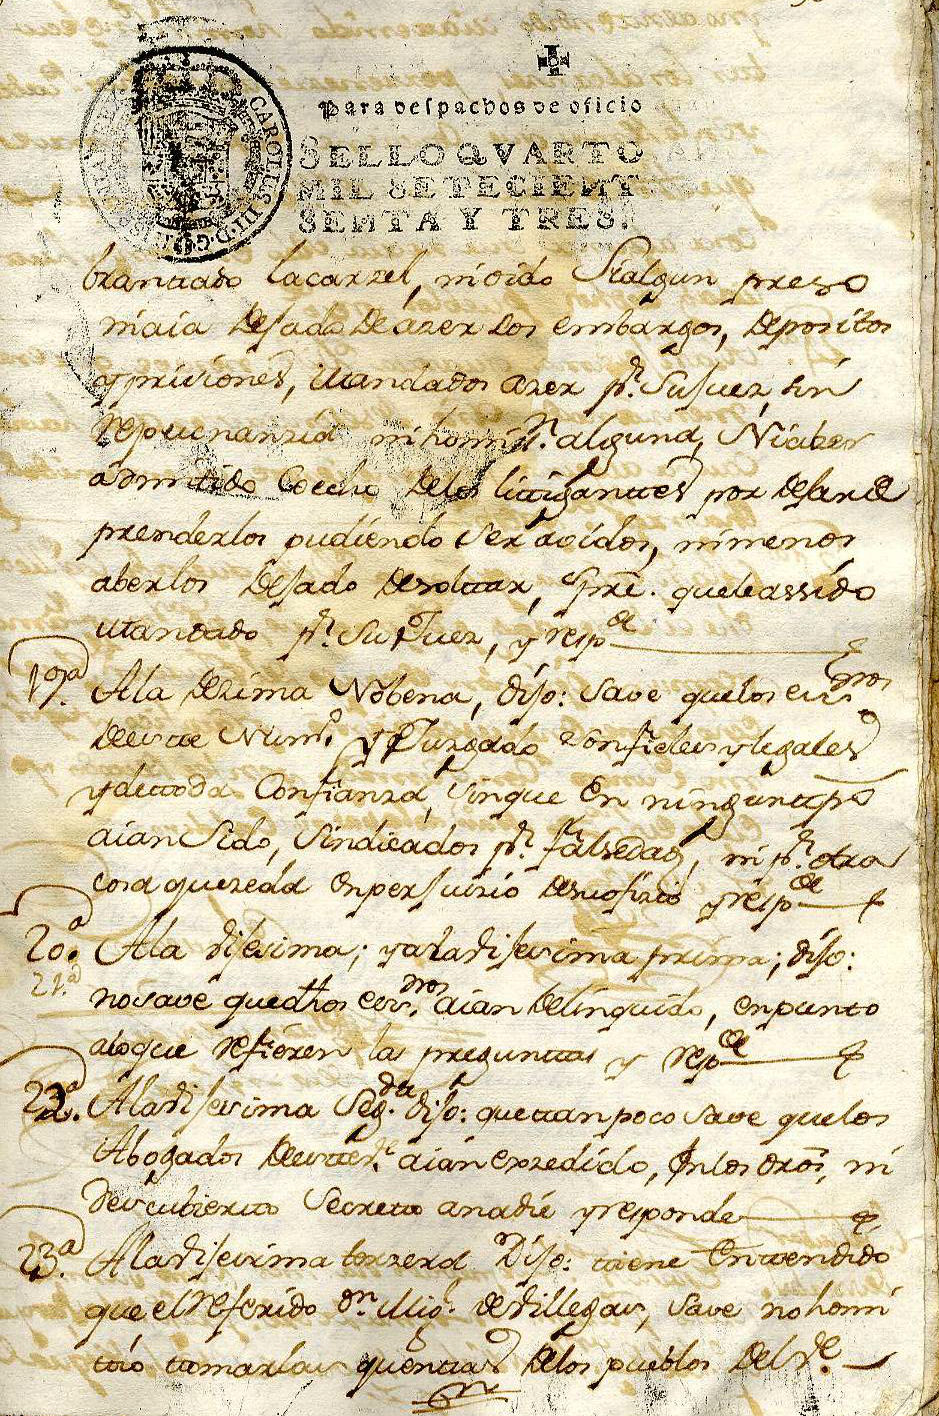 Para despachos de oficio
SELLO QVARTO
MIL SETECIENT
SENTA Y TRES.
CAROLUS III D. G.
brantado la carzel, ni oido Si algun preso
n aia Desado de azer los embargos, Depositos
y prisiones, Mandados azer pr. Su Juez, sin
repugnanzia ni homisn. alguna, Ni aber
admitido Coecho De los litigantes por Desar de
prenderlos pudiendo ser avidos, ni menos
aberlos Desado De soltar, Spre. que le a ssido
Mandado pr. Su Juez, y respde
19a. A la Dezima Nobena, dijo: save que los essnos
De este Numo. y Juzgado son fieles y legales
y de toda Confianza, sin que En ningun tpo
aian Sido, Sindicados pr. falsedad, ni pr. otra
cosa que zeda en perjuizio de su ofizio y respde
20a. A la Visesima; y a la Visesima prima; dijo:
21a.
no save que dhos essnos. aian Delinquido, en punto
a lo que refieren las preguntas y respde
22a. A la Visesima Segda. dijo: que tan poco save que los
Abogados De esta aian exzedido, En los dros, ni
Descubierto Secreto a nadie y responde
23a. A la Visesima terzera Dijo: tiene Entendido
que el referido Dn. Migl. de Villegas, save no homi
tio tomar las quentas De los pueblos Del Ve.